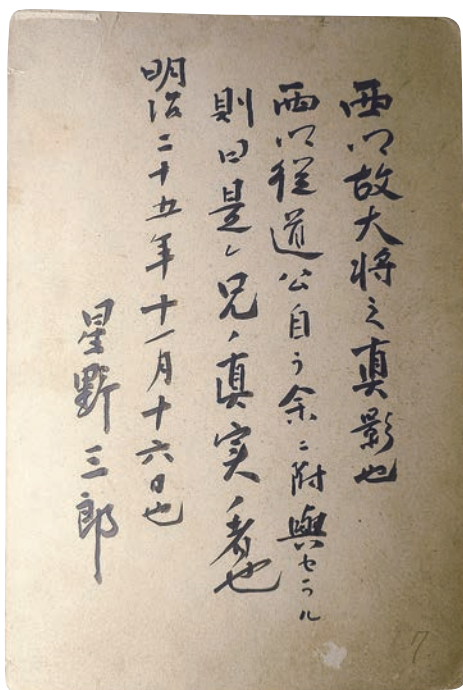 西郷故大将之真影也
西郷従道公自ラ余ニ附與セラル
則曰是レ兄ノ真実ノ者也
明治二十五年十一月十六日也
星野三郎
7